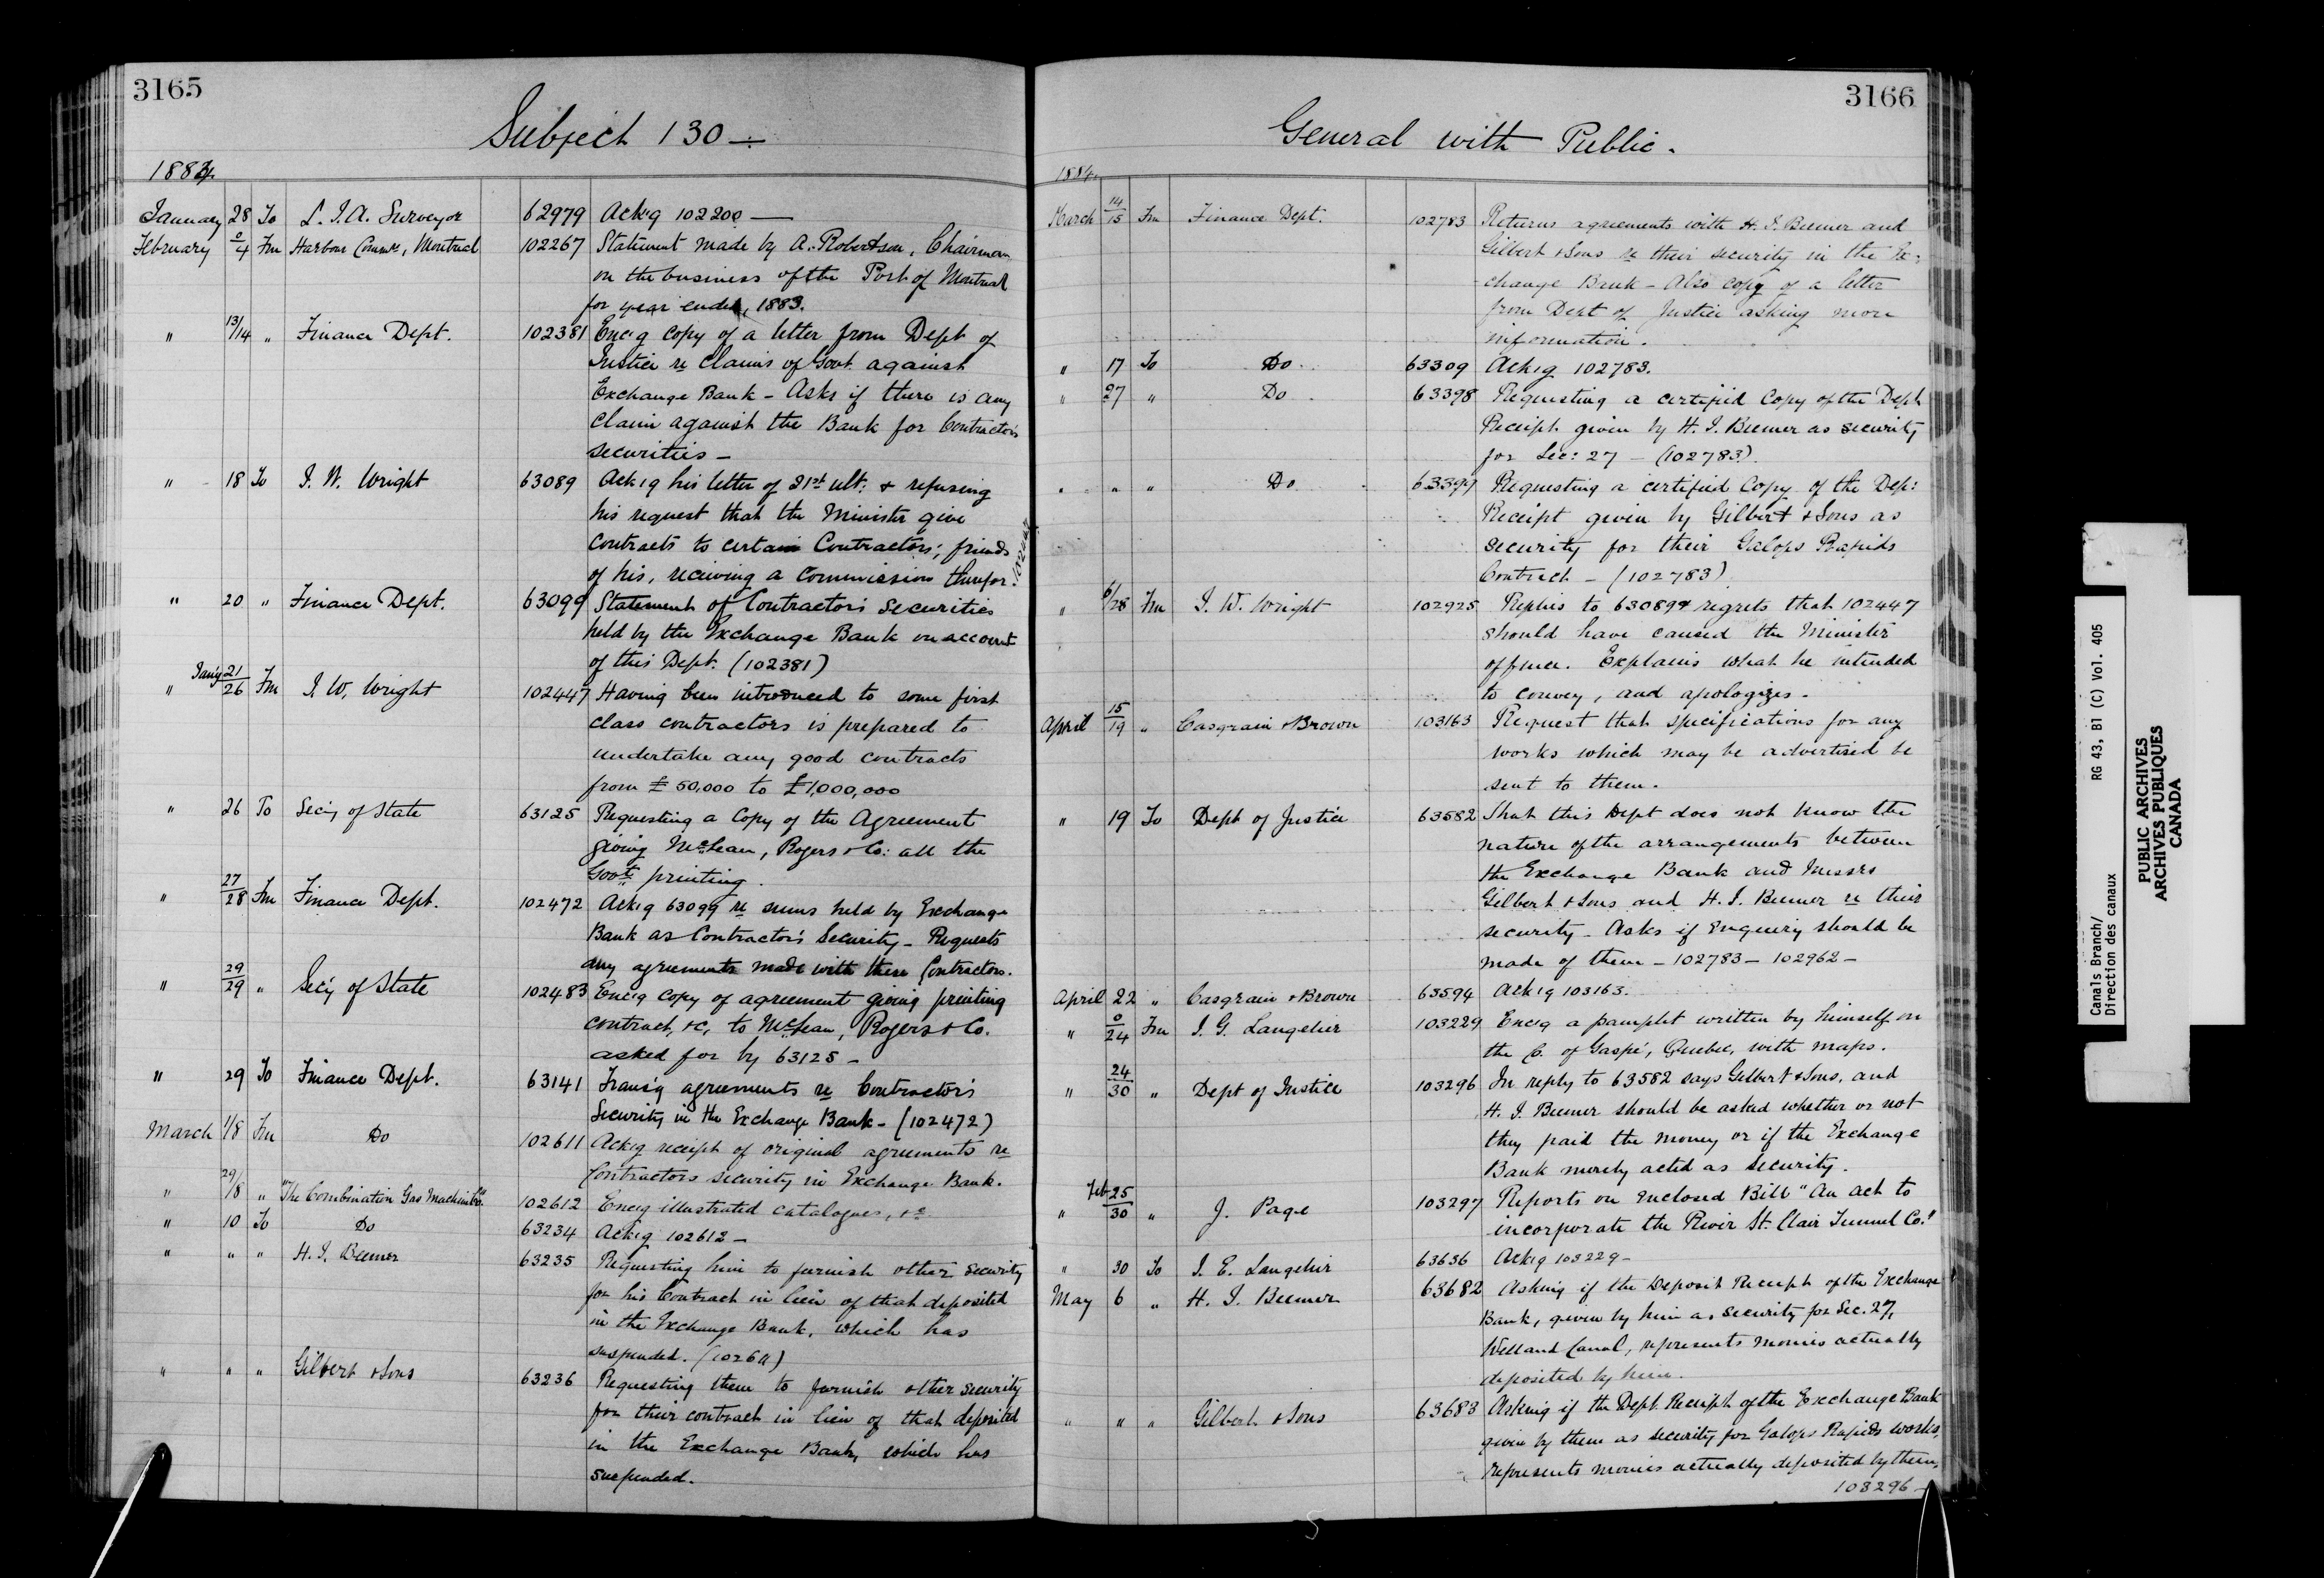 3165
Subject 130 —
1884.
January 28 To L. J. A. Surveyor 62979 Ack'g 102200 —
February 0/4 Fm Harbour Comm'rs, Montreal 102267 Statement made by A. Robertson, Chairman
on the business of the Port of Montreal
for year ended, 1883.
" 13/14 " Finance Dept. 102381 Enc'g copy of a letter from Dept of
Justice re Claims of Govt. against
Exchange Bank - Asks if there is any
claim against the Bank for Contractors
securities —
" 18 To J. W. Wright 63089 Ack'g his letter of 21st ult: & refusing
his request that the Minister give
contracts to certain Contractors; friends
of his, receiving a Commission therefor. 102447
" 20 " Finance Dept. 63099 Statement of Contractor's securities
held by the Exchange Bank on account
of this Dept. (102381)
" Jan'y 21/26 Fm J. W. Wright 102447 Having been introduced to some first
class contractors is prepared to
undertake any good contracts
from £ 50,000 to £1,000,000
" 26 To Sec'y of State 63125 Requesting a Copy of the Agreement
giving McLean, Rogers & Co: all the
Govt. printing.
" 27/28 Fm Finance Dept. 102472 Ack'g 63099 re sums held by Exchange
Bank as Contractor's Security - Requests
any agreements made with these Contractors.
" 29/29 " Sec'y of State 102483 Enc'g copy of agreement giving printing
contract, &c, to McLean, Rogers & Co.
asked for by 63125 —
" 29 To Finance Dept. 63141 Trans'g agreements re Contractor's
Security in the Exchange Bank - (102472)
March 1/8 Fm Do 102611 Ack'g receipt of original agreements re
Contractors security in Exchange Bank.
" 29/8 " "The Combination Gas Machine Co." 102612 Enc'g illustrated catalogues, &c
" 10 To Do 63234 Ack'g 102612 —
" " " H. J. Beemer 63235 Requesting him to furnish other security
for his Contract in lieu of that deposited
in the Exchange Bank, which has
suspended. (102611)
" " " Gilbert & Sons 63236 Requesting them to furnish other security
for their contract in lieu of that deposited
in the Exchange Bank, which has
suspended.
3166
General with Public.
1884.
March 14/15 Fm Finance Dept. 102783 Returns agreements with H. J. Beemer and
Gilbert & Sons re their security in the Ex-
change Bank - Also copy of a letter
from Dept of Justice asking more
information.
" 17 To Do 63309 Ack'g 102783.
" 27 " Do 63398 Requesting a certified Copy of the Dept
Receipt given by H. J. Beemer as security
for Sec: 27 - (102783)
" " " Do 63399 Requesting a certified Copy of the Dep:
Receipt given by Gilbert & Sons as
security for their Galops Rapids
Contract - (102783)
" 6/28 Fm J. W. Wright 102925 Replies to 63089 & regrets that 102447
should have caused the Minister
offence. Explains what he intended
to convey, and apologizes.
April 15/19 " Casgrain & Brown 103163 Request that specifications for any
works which may be advertised be
sent to them.
" 19 To Dept of Justice 63582 That this Dept does not know the
nature of the arrangements between
the Exchange Bank and Messrs
Gilbert & Sons and H. J. Beemer re their
security - Asks if Enquiry should be
made of them - 102783 - 102962 -
April 22 " Casgrain & Brown 63594 Ack'g 103163.
" 0/24 Fm J. G. Langelier 103229 Enc'g a pamphlt written by himself on
the C. of Gaspé, Quebec, with maps.
" 24/30 " Dept of Justice 103296 In reply to 63582 says Gilbert & Sons, and
H. J. Beemer should be asked whether or not
they paid the money or if the Exchange
Bank merely acted as Security.
" Feb 25/30 " J. Page 103297 Reports on enclosed Bill "An act to
incorporate the River St. Clair Tunnel Co."
" 30 To J. E. Langelier 63636 Ack'g 103229 -
May 6 " H. J. Beemer 63682 Asking if the Deposit Receipt of the Exchange
Bank, given by him as security for Sec. 27,
Welland Canal, represents monies actually
deposited by him.
" " " Gilbert & Sons 63683 Asking if the Dept. Receipt of the Exchange Bank
given by them as security for Galops Rapids works,
represents monies actually deposited by them,
103296 -
Canals Branch/
Direction des canaux
RG 43, B1 (C) Vol. 405
PUBLIC ARCHIVES
ARCHIVES PUBLIQUES
CANADA